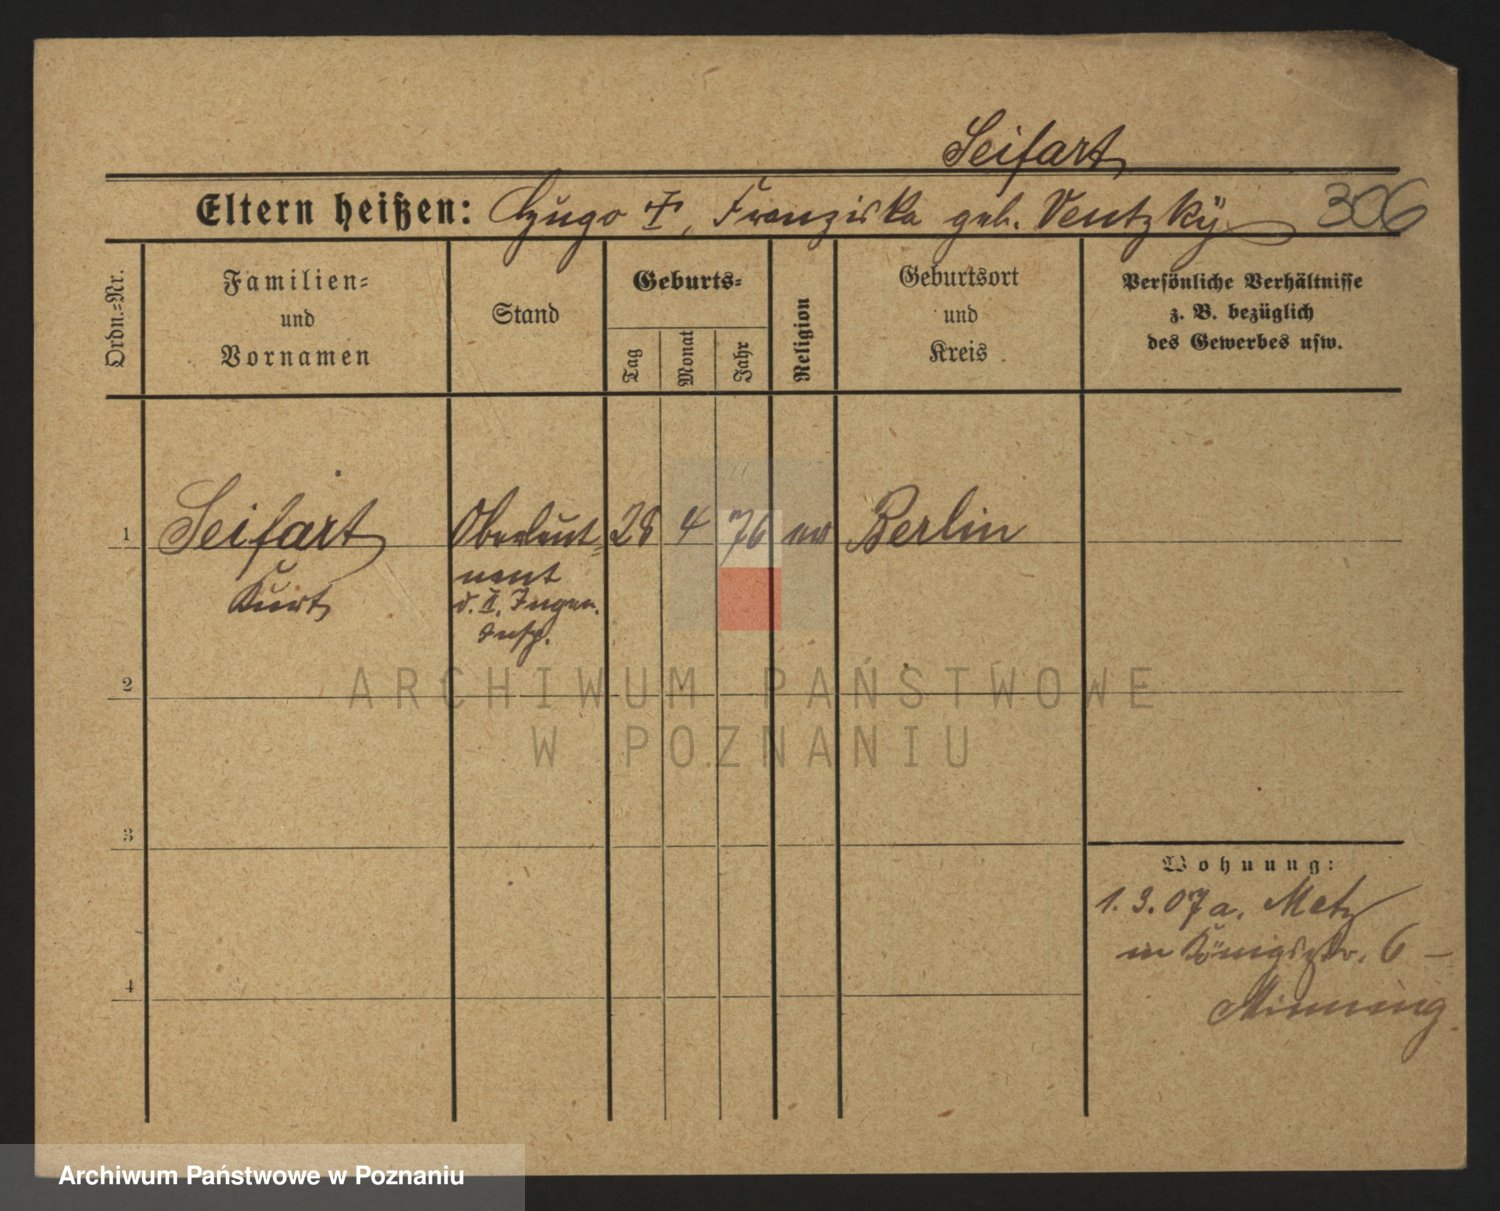 Seifart
Eltern heißen: Hugo †, Franziska geb. Ventzky 306
Ordn.=Nr.
Familien=
und
Vornamen
Stand
Geburts=
Tag
Monat
Jahr
Religion
Geburtsort
und
Kreis
Persönliche Verhältnisse
z. B. bezüglich
des Gewerbes usw.
1 Seifart Oberleut= 28 4 76 ev Berlin
Kurt nant
d. II. Ingen.
Insp.
2
3
4
Wohnung:
1. 3. 07 a. Metz
in Königstr. 6 –
ARCHIWUM PAŃSTWOWE
W POZNANIU
Archiwum Państwowe w Poznaniu